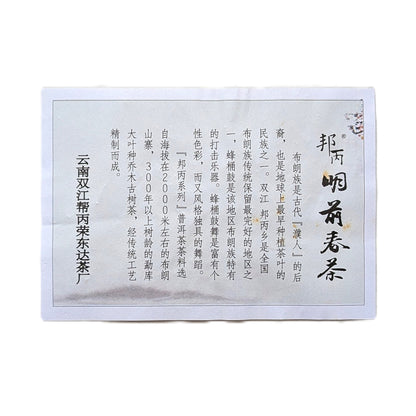 邦丙®
明前春茶
布朗族是古代『濮人』的后
裔，也是地球上最早种植茶叶的
民族之一。双江 邦丙乡是全国
布朗族传统保留最完好的地区之
一，蜂桶鼓是该地区布朗族特有
的打击乐器。蜂桶鼓舞是富有个
性色彩，而又风格独具的舞蹈。
『邦丙系列』普洱茶茶料选
自海拔在2000米左右的布朗
山寨，300年以上树龄的勐库
大叶种乔木古树茶，经传统工艺
精制而成。
云南双江帮丙荣东达茶厂